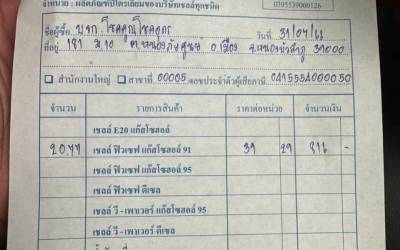 จำหน่าย : ผลิตภัณฑ์ปิโตรเลียมของบริษัทเชลล์ทุกชนิด
0395559000126
ชื่อผู้ซื้อ บจก. โชคคูณโชคอุดร วันที่ 31/07/68
ที่อยู่ 181 ม.10 ต.หนองภัยศูนย์ อ.เมือง จ.หนองบัวลำภู 39000
สำนักงานใหญ่ สาขาที่ 00005 เลขประจำตัวผู้เสียภาษี 0415554000050
จำนวน รายการสินค้า ราคาต่อหน่วย จำนวนเงิน
เชลล์ E20 แก๊สโซฮอล์
20.77 เชลล์ ฟิวเซฟ แก๊สโซฮอล์ 91 39 29 816 -
เชลล์ ฟิวเซฟ แก๊สโซฮอล์ 95
เชลล์ ฟิวเซฟ ดีเซล
เชลล์ วี - เพาเวอร์ แก๊สโซฮอล์ 95
เชลล์ วี - เพาเวอร์ ดีเซล